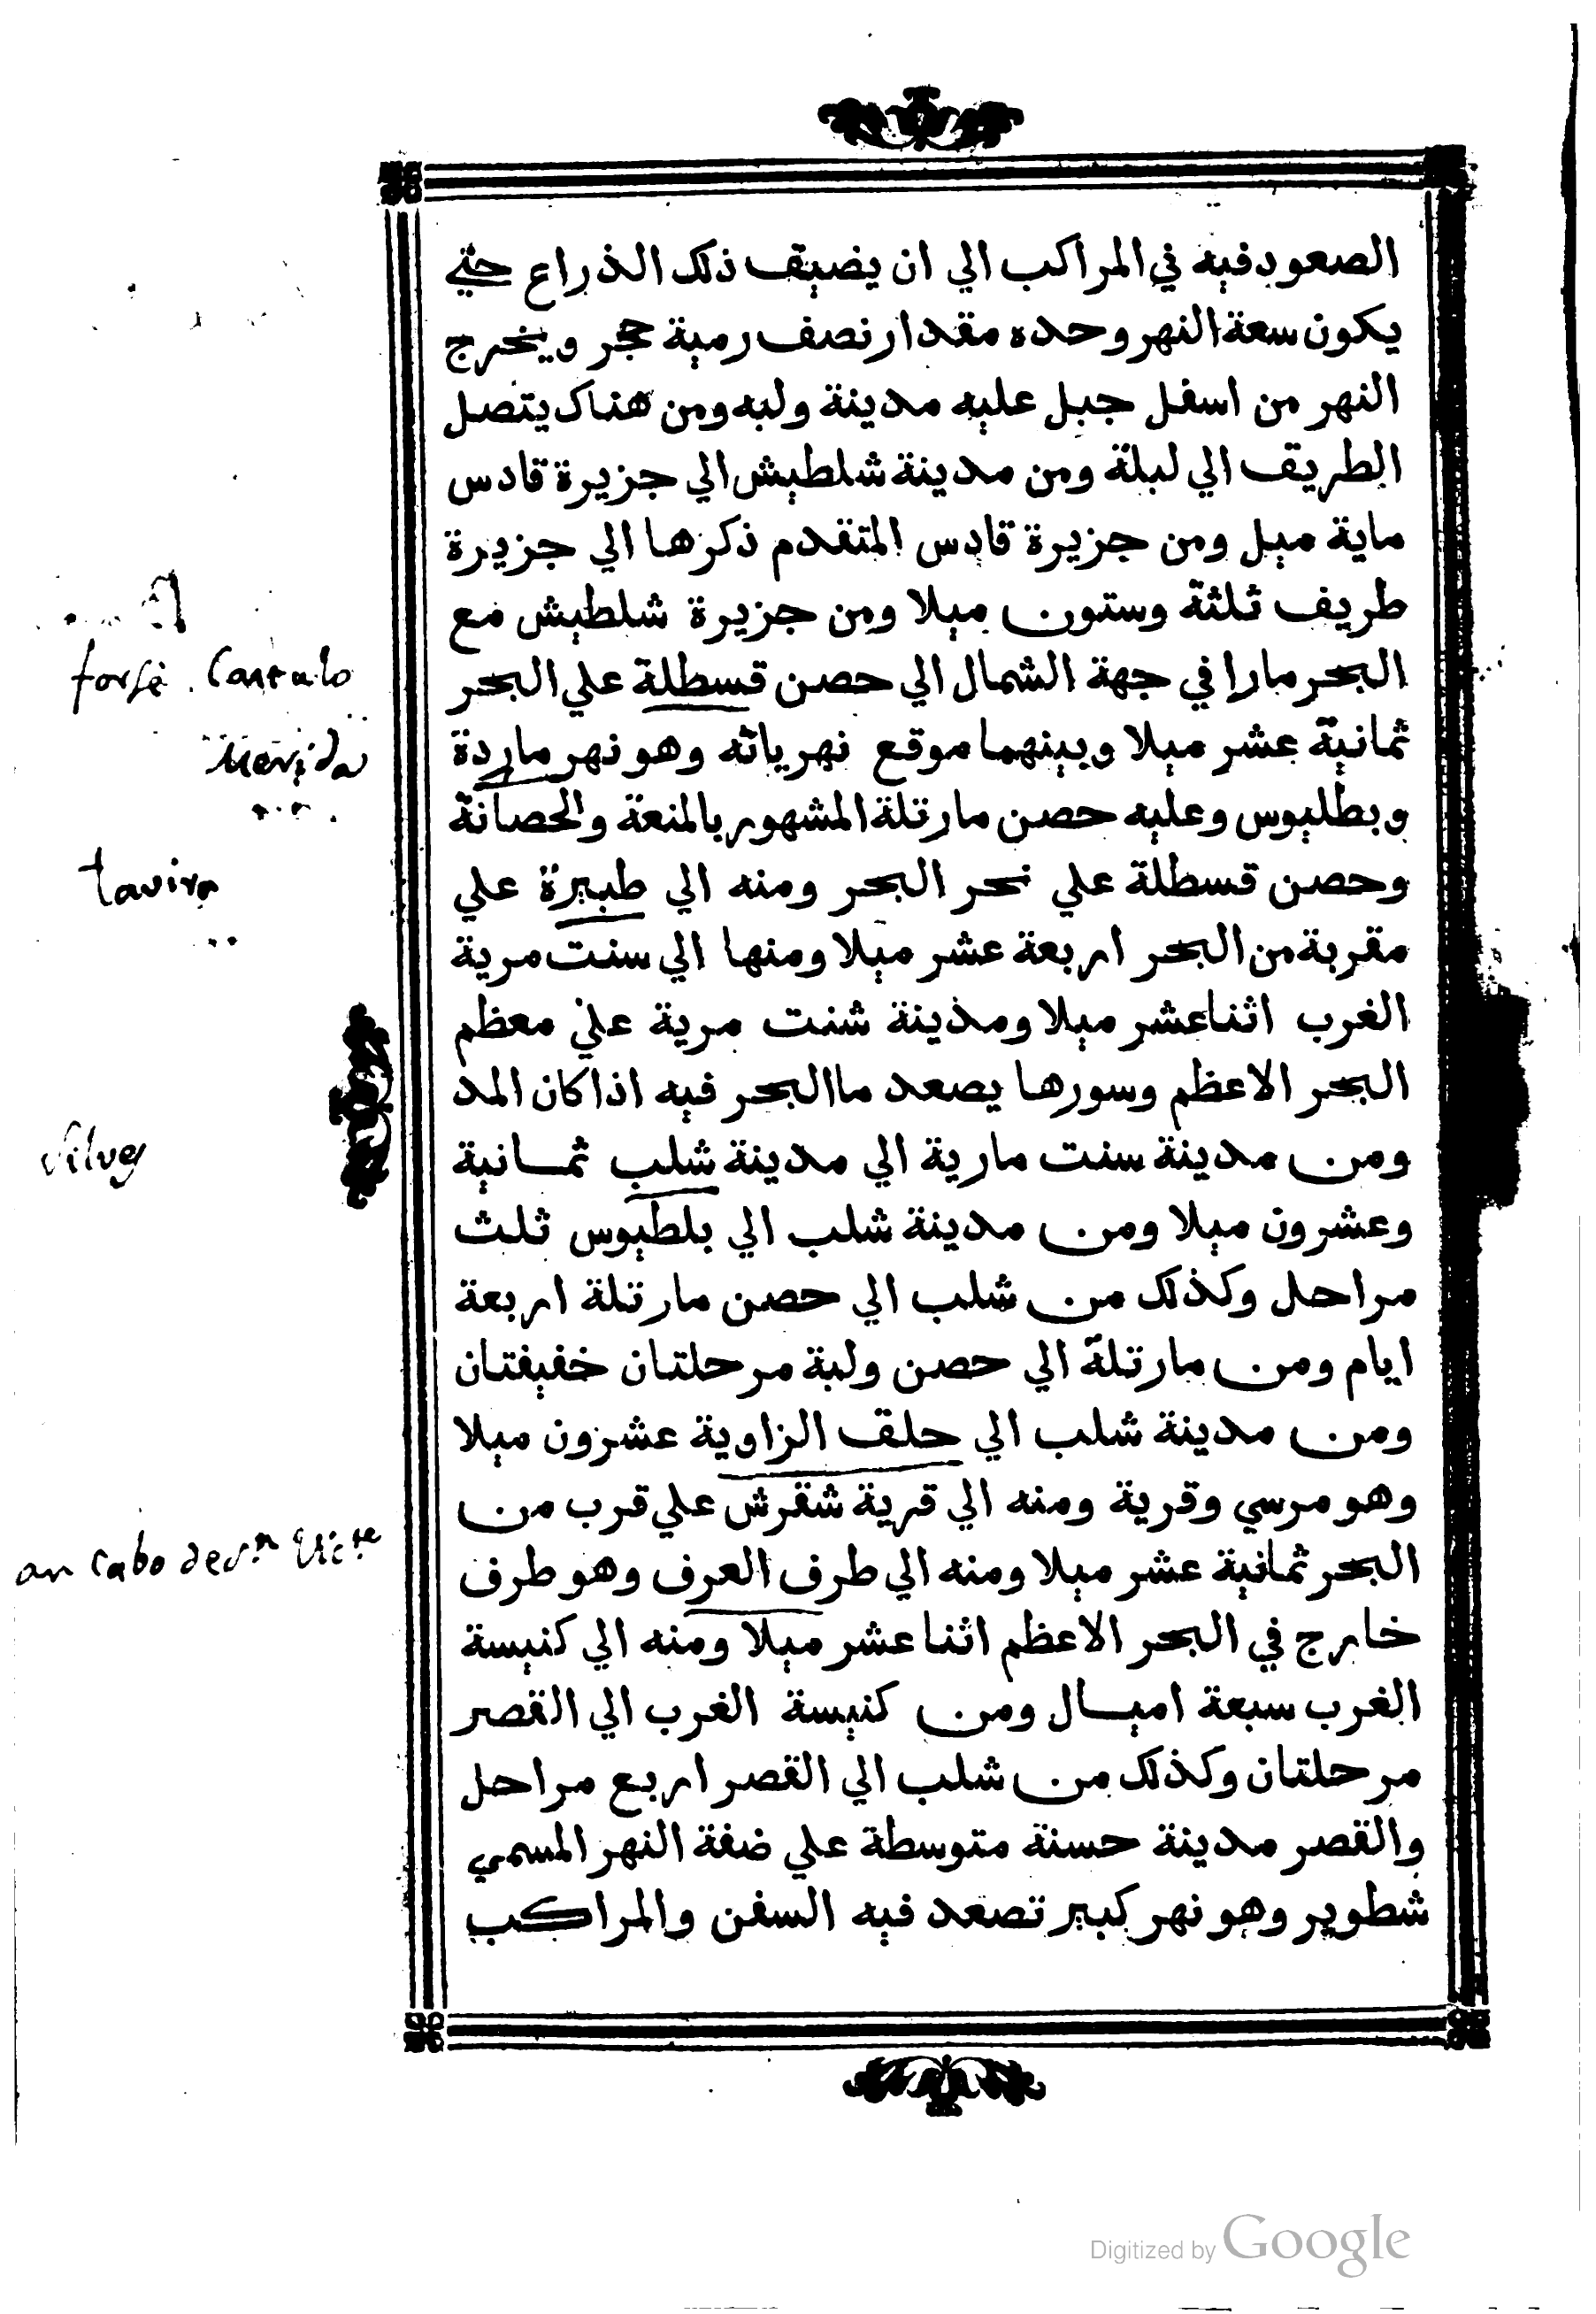 الصعود فيه في المراكب الي ان يضيق ذلك الذراع حتي
يكون سعة النهر وحده مقدار نصف رمية حجر ويخرج
النهر من اسفل جبل عليه مدينة ولبه ومن هناك يتصل
الطريق الي لبلة ومن مدينة شلطيش الي جزيرة قادس
ماية ميل ومن جزيرة قادس المتقدم ذكرها الي جزيرة
طريف ثلثة وستون ميلا ومن جزيرة شلطيش مع
البحر مارا في جهة الشمال الي حصن قسطلة علي البحر
ثمانية عشر ميلا وبينهما موقع نهر يانه وهو نهر ماردة
وبطليوس وعليه حصن مارتلة المشهور بالمنعة والحصانة
وحصن قسطلة علي نحر البحر ومنه الي طبيرة علي
مقربة من البحر اربعة عشر ميلا ومنها الي سنت مرية
الغرب اثنا عشر ميلا ومدينة شنت مرية علي معظم
البحر الاعظم وسورها يصعد ما البحر فيه اذا كان المد
ومن مدينة سنت مارية الي مدينة شلب ثمانية
وعشرون ميلا ومن مدينة شلب الي بلطيوس ثلث
مراحل وكذلك من شلب الي حصن مارتلة اربعة
ايام ومن مارتلة الي حصن ولبة مرحلتان خفيفتان
ومن مدينة شلب الي حلق الزاوية عشرون ميلا
وهو مرسي وقرية ومنه الي قرية شقرش علي قرب من
البحر ثمانية عشر ميلا ومنه الي طرف العرف وهو طرف
خارج في البحر الاعظم اثنا عشر ميلا ومنه الي كنيسة
الغرب سبعة اميال ومن كنيسة الغرب الي القصر
مرحلتان وكذلك من شلب الي القصر اربع مراحل
والقصر مدينة حسنة متوسطة علي ضفة النهر المسمي
شطوير وهو نهر كبير تصعد فيه السفن والمراكب
forsè
Merida
tavira
Silves
an Cabo de
Digitized by Google